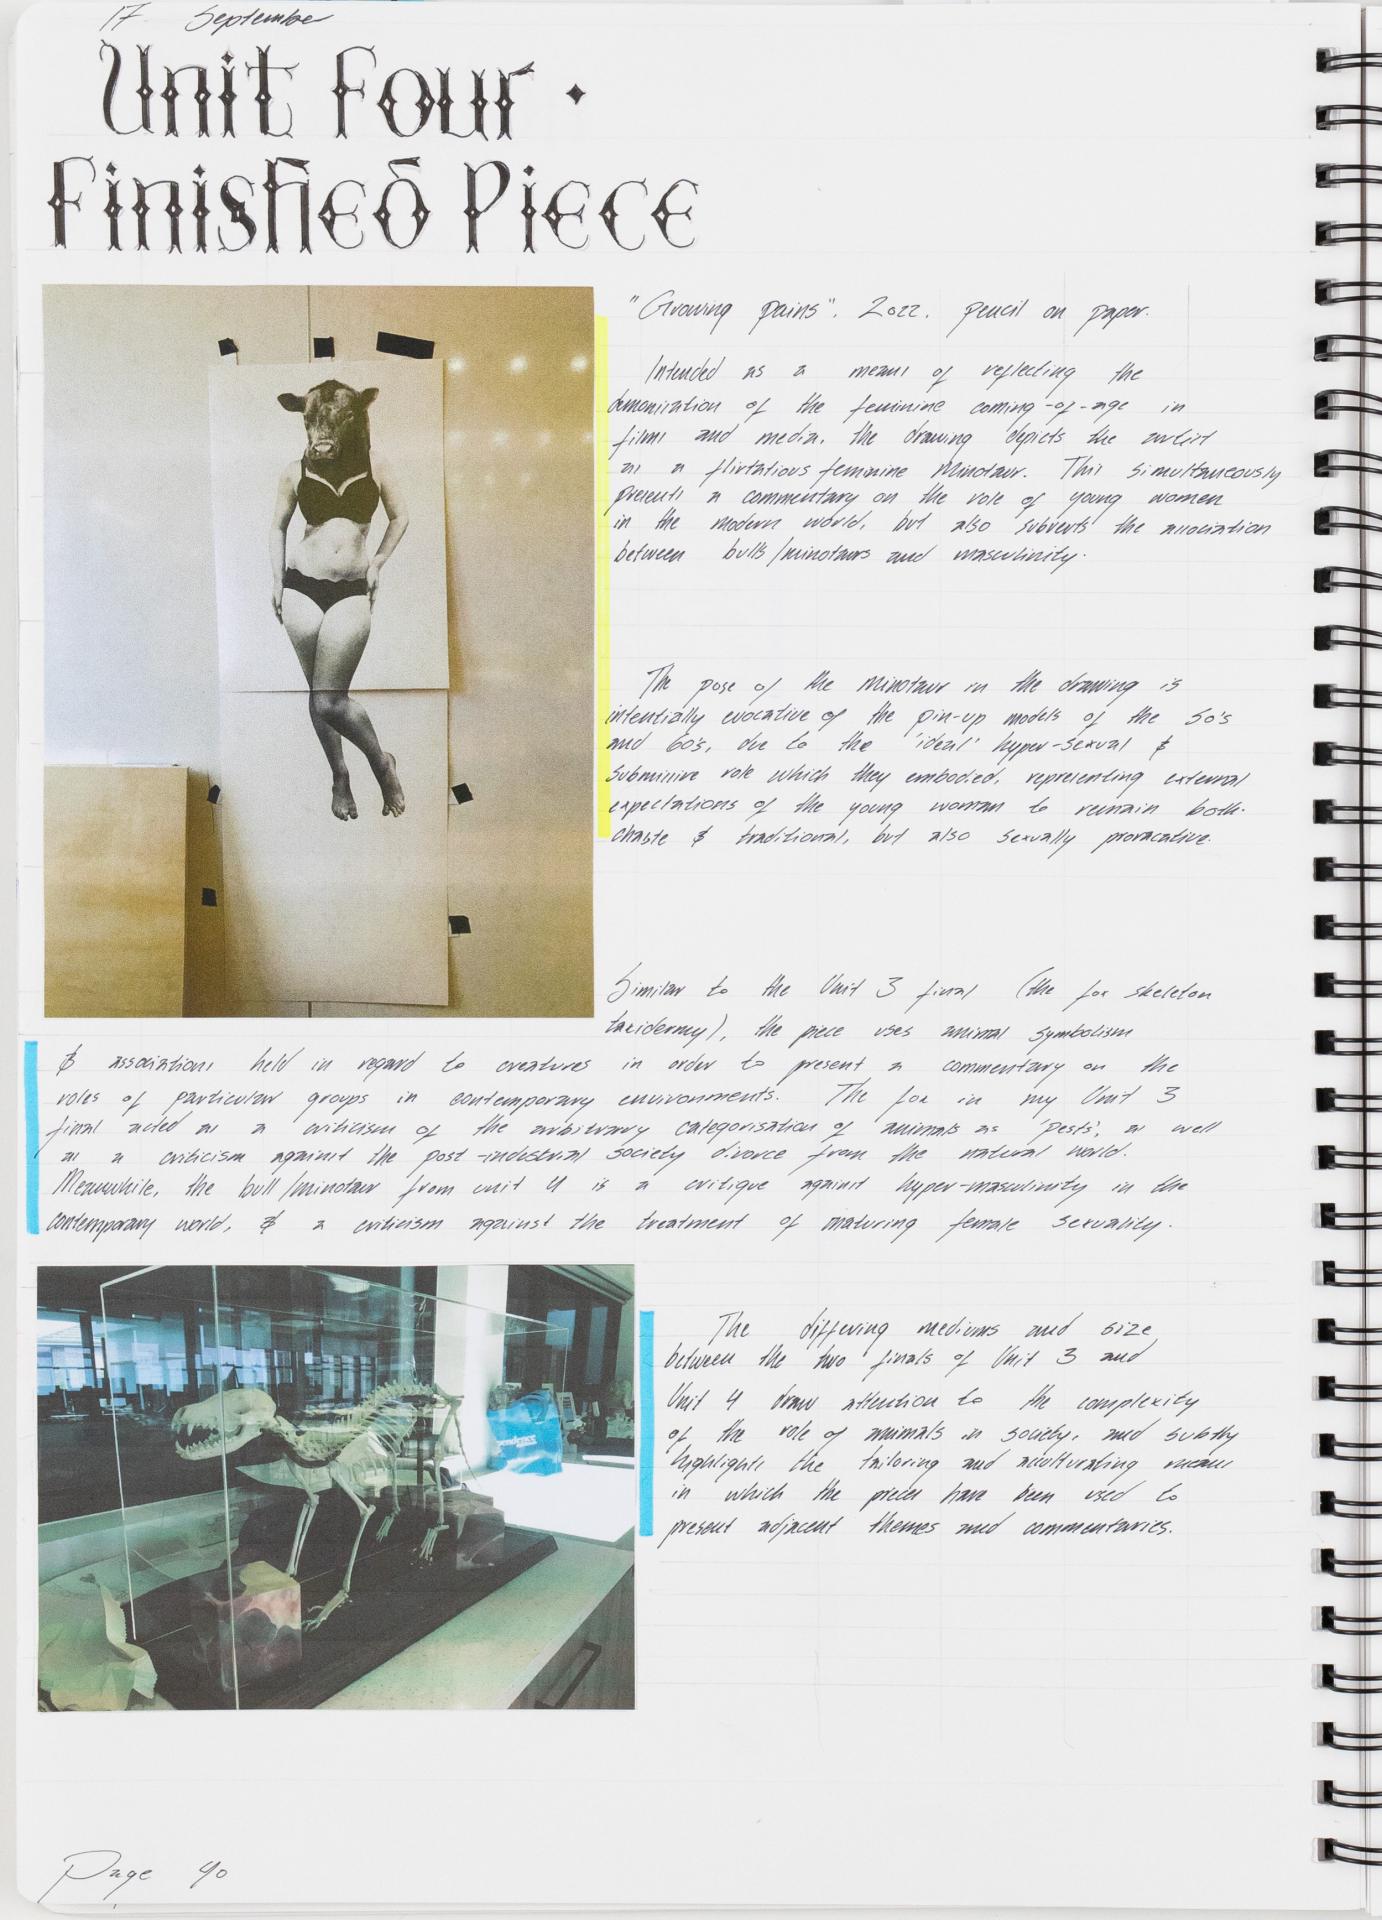 17 September
Unit Four ·
Finished Piece
"Growing pains". 2022. pencil on paper.
Intended as a means of reflecting the
demonisation of the feminine coming-of-age in
films and media, the drawing depicts the artist
as a flirtatious feminine Minotaur. This simultaneously
presents a commentary on the role of young women
in the modern world, but also subverts the association
between bulls/minotaurs and masculinity.
The pose of the minotaur in the drawing is
intentially evocative of the pin-up models of the 50's
and 60's, due to the 'ideal' hyper-sexual &
submissive role which they embodied, representing external
expectations of the young woman to remain both
chaste & traditional, but also sexually provacative.
Similar to the Unit 3 final (the fox skeleton
taxidermy), the piece uses animal symbolism
& associations held in regard to creatures in order to present a commentary on the
roles of particular groups in contemporary environments. The fox in my Unit 3
final acted as a criticism of the arbitrary categorisation of animals as 'pests', as well
as a criticism against the post-industrial society divorce from the natural world.
Meanwhile, the bull/minotaur from unit 4 is a critique against hyper-masculinity in the
contemporary world, & a criticism against the treatment of maturing female sexuality.
The differing mediums and size
between the two finals of Unit 3 and
Unit 4 draw attention to the complexity
of the role of animals in society, and subtly
highlights the tailoring and acculturating means
in which the pieces have been used to
present adjacent themes and commentaries.
Page 40